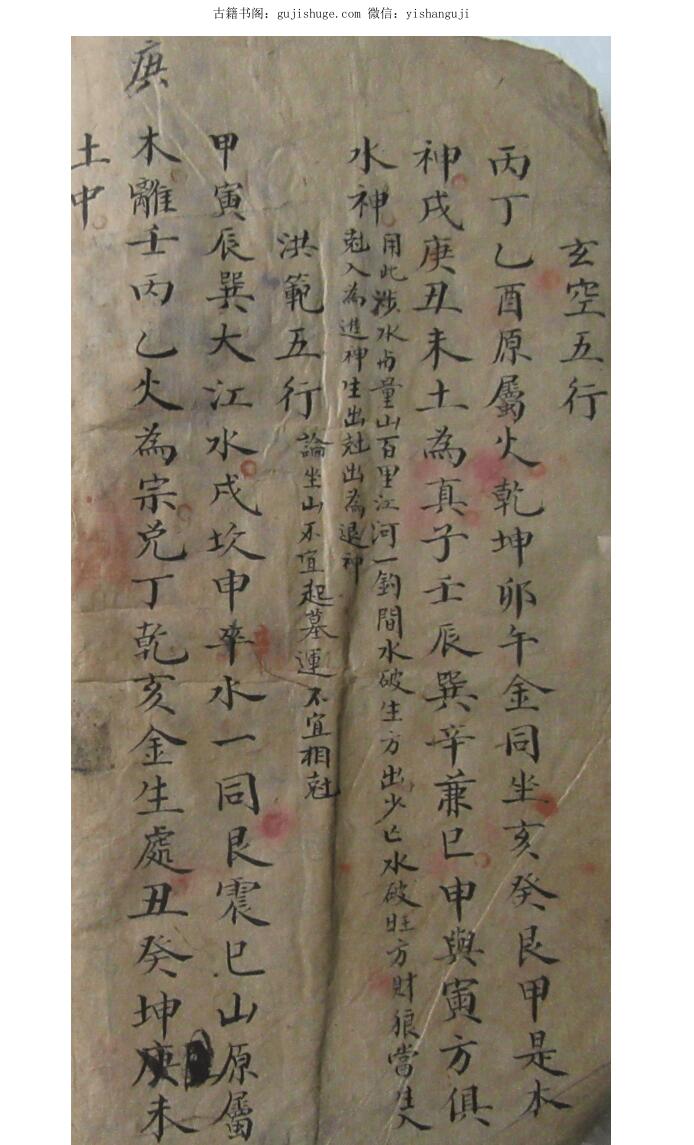 古籍书阁：gujishuge.com 微信：yishanguji
玄空五行
丙丁乙酉原屬火乾坤卯午金同坐亥癸艮甲是木
神戌庚丑未土為真子壬辰巽辛兼巳申與寅方俱
水神用此涉水与量山百里江河一鈞間水破生方出少亡水破旺方財狼當
尅入為進神生出尅出為退神
洪範五行論坐山不宜起墓運不宜相尅
甲寅辰巽大江水戌坎申辛水一同艮震巳山原屬
木離壬丙乙火為宗兌丁乾亥金生處丑癸坤庚未
土中
庚